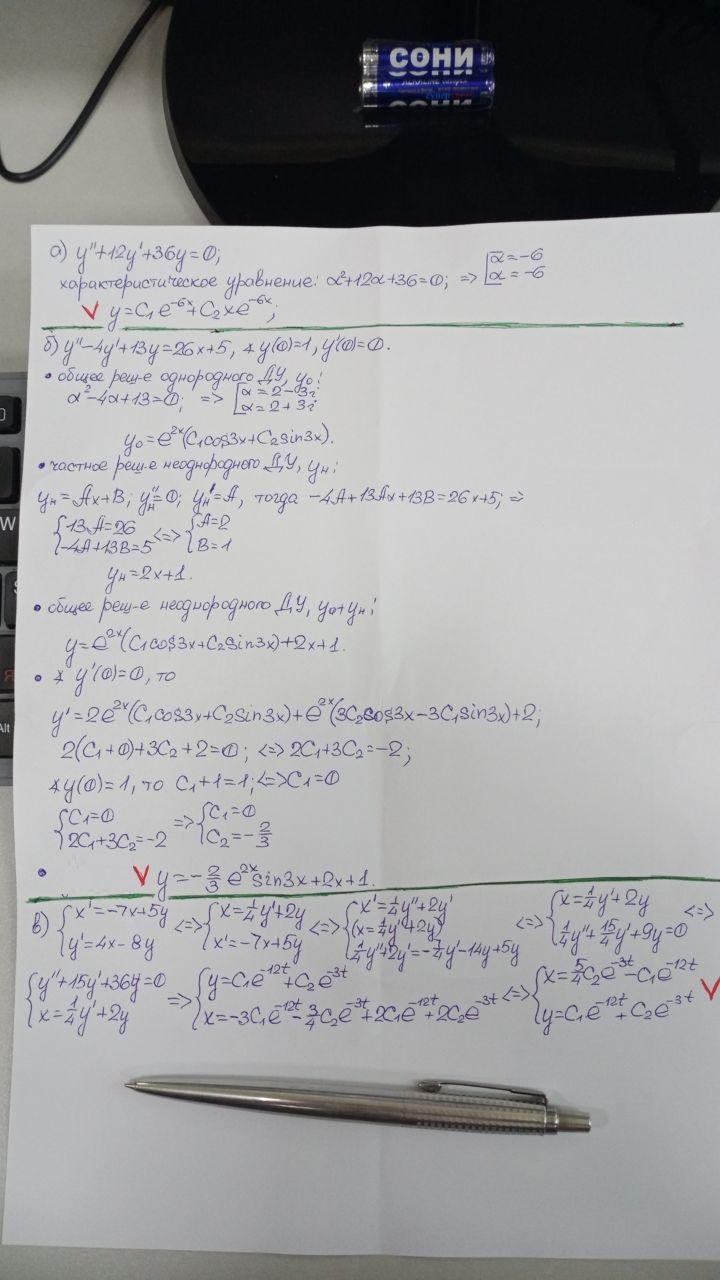 СОНИ
а) y''+12y'+36y=0;
характеристическое уравнение: α²+12α+36=0; => [α=-6 α=-6
V y=C₁e^{-6x}+C₂xe^{-6x};
б) y''-4y'+13y=26x+5, ∡ y(0)=1, y'(0)=0.
• общее реш-е однородного ДУ, y₀:
α²-4α+13=0; => [α=2-3i α=2+3i
y₀=e^{2x}(C₁cos3x+C₂sin3x).
• частное реш-е неоднородного ДУ, yн:
yн=Ax+B; yн''=0; yн'=A, тогда -4A+13Ax+13B=26x+5; =>
{13A=26 -4A+13B=5 <=> {A=2 B=1
yн=2x+1.
• общее реш-е неоднородного ДУ, y₀+yн:
y=e^{2x}(C₁cos3x+C₂sin3x)+2x+1.
• ∡ y'(0)=0, то
y'=2e^{2x}(C₁cos3x+C₂sin3x)+e^{2x}(3C₂cos3x-3C₁sin3x)+2;
2(C₁+0)+3C₂+2=0; <=> 2C₁+3C₂=-2;
∡ y(0)=1, то C₁+1=1; <=> C₁=0
{C₁=0 2C₁+3C₂=-2 => {C₁=0 C₂=-2/3
• V y=-2/3 e^{2x}sin3x+2x+1.
в) {x'=-7x+5y y'=4x-8y <=> {x=1/4y'+2y x'=-7x+5y <=> {x'=1/4y''+2y' (x=1/4y'+2y) 1/4y''+2y'=-7/4y'-14y+5y <=> {x=1/4y'+2y 1/4y''+15/4y'+9y=0 <=>
{y''+15y'+36y=0 x=1/4y'+2y => {y=C₁e^{-12t}+C₂e^{-3t} x=-3C₁e^{-12t}-3/4C₂e^{-3t}+2C₁e^{-12t}+2C₂e^{-3t} <=> {x=5/4C₂e^{-3t}-C₁e^{-12t} y=C₁e^{-12t}+C₂e^{-3t} V